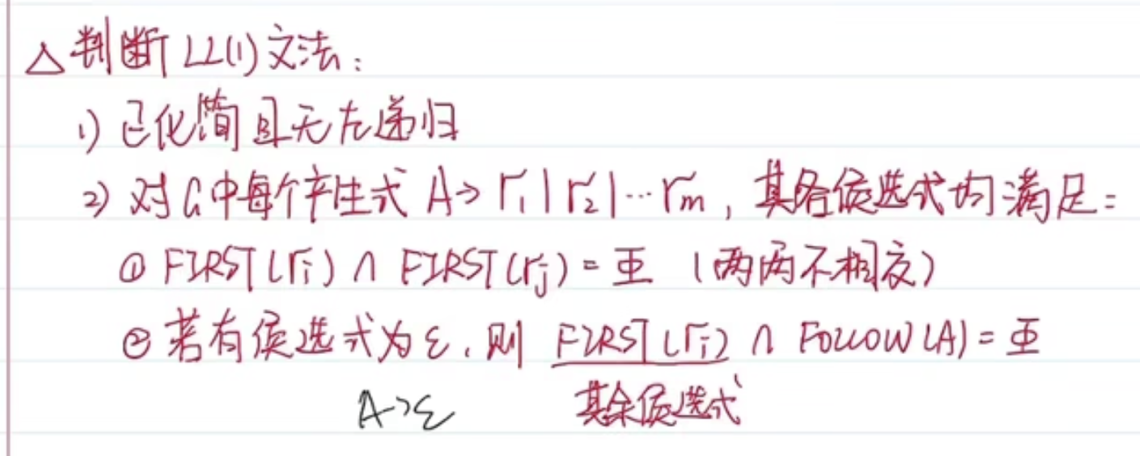 △判断LL(1)文法：
1) 已化简且无左递归
2) 对G中每个产生式 A→r₁|r₂|…rₘ，其各侯选式均满足：
① FIRST(rᵢ) ∩ FIRST(rⱼ) = Φ （两两不相交）
② 若有侯选式为ε，则 FIRST(rᵢ) ∩ FOLLOW(A) = Φ
A→ε 其余侯选式